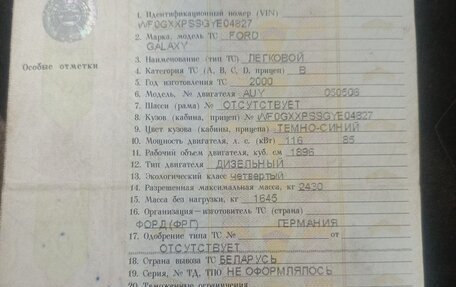 1. Идентификационный номер (VIN)
WF0GXXPSSGYE04827
2. Марка, модель ТС FORD
GALAXY
Особые отметки
3. Наименование (тип ТС) ЛЕГКОВОЙ
4. Категория ТС (A, B, C, D, прицеп) B
5. Год изготовления ТС 2000
6. Модель, № двигателя AUY 050506
7. Шасси (рама) № ОТСУТСТВУЕТ
8. Кузов (кабина, прицеп) № WF0GXXPSSGYE04827
9. Цвет кузова (кабины, прицепа) ТЕМНО-СИНИЙ
10. Мощность двигателя, л. с. (кВт) 116 85
11. Рабочий объем двигателя, куб. см 1896
12. Тип двигателя ДИЗЕЛЬНЫЙ
13. Экологический класс четвертый
14. Разрешенная максимальная масса, кг 2430
15. Масса без нагрузки, кг 1645
16. Организация—изготовитель ТС (страна)
ФОРД (ФРГ) ГЕРМАНИЯ
17. Одобрение типа ТС № от
ОТСУТСТВУЕТ
18. Страна вывоза ТС БЕЛАРУСЬ
19. Серия, № ТД, ТПО НЕ ОФОРМЛЯЛОСЬ
20. Таможенные ограничения